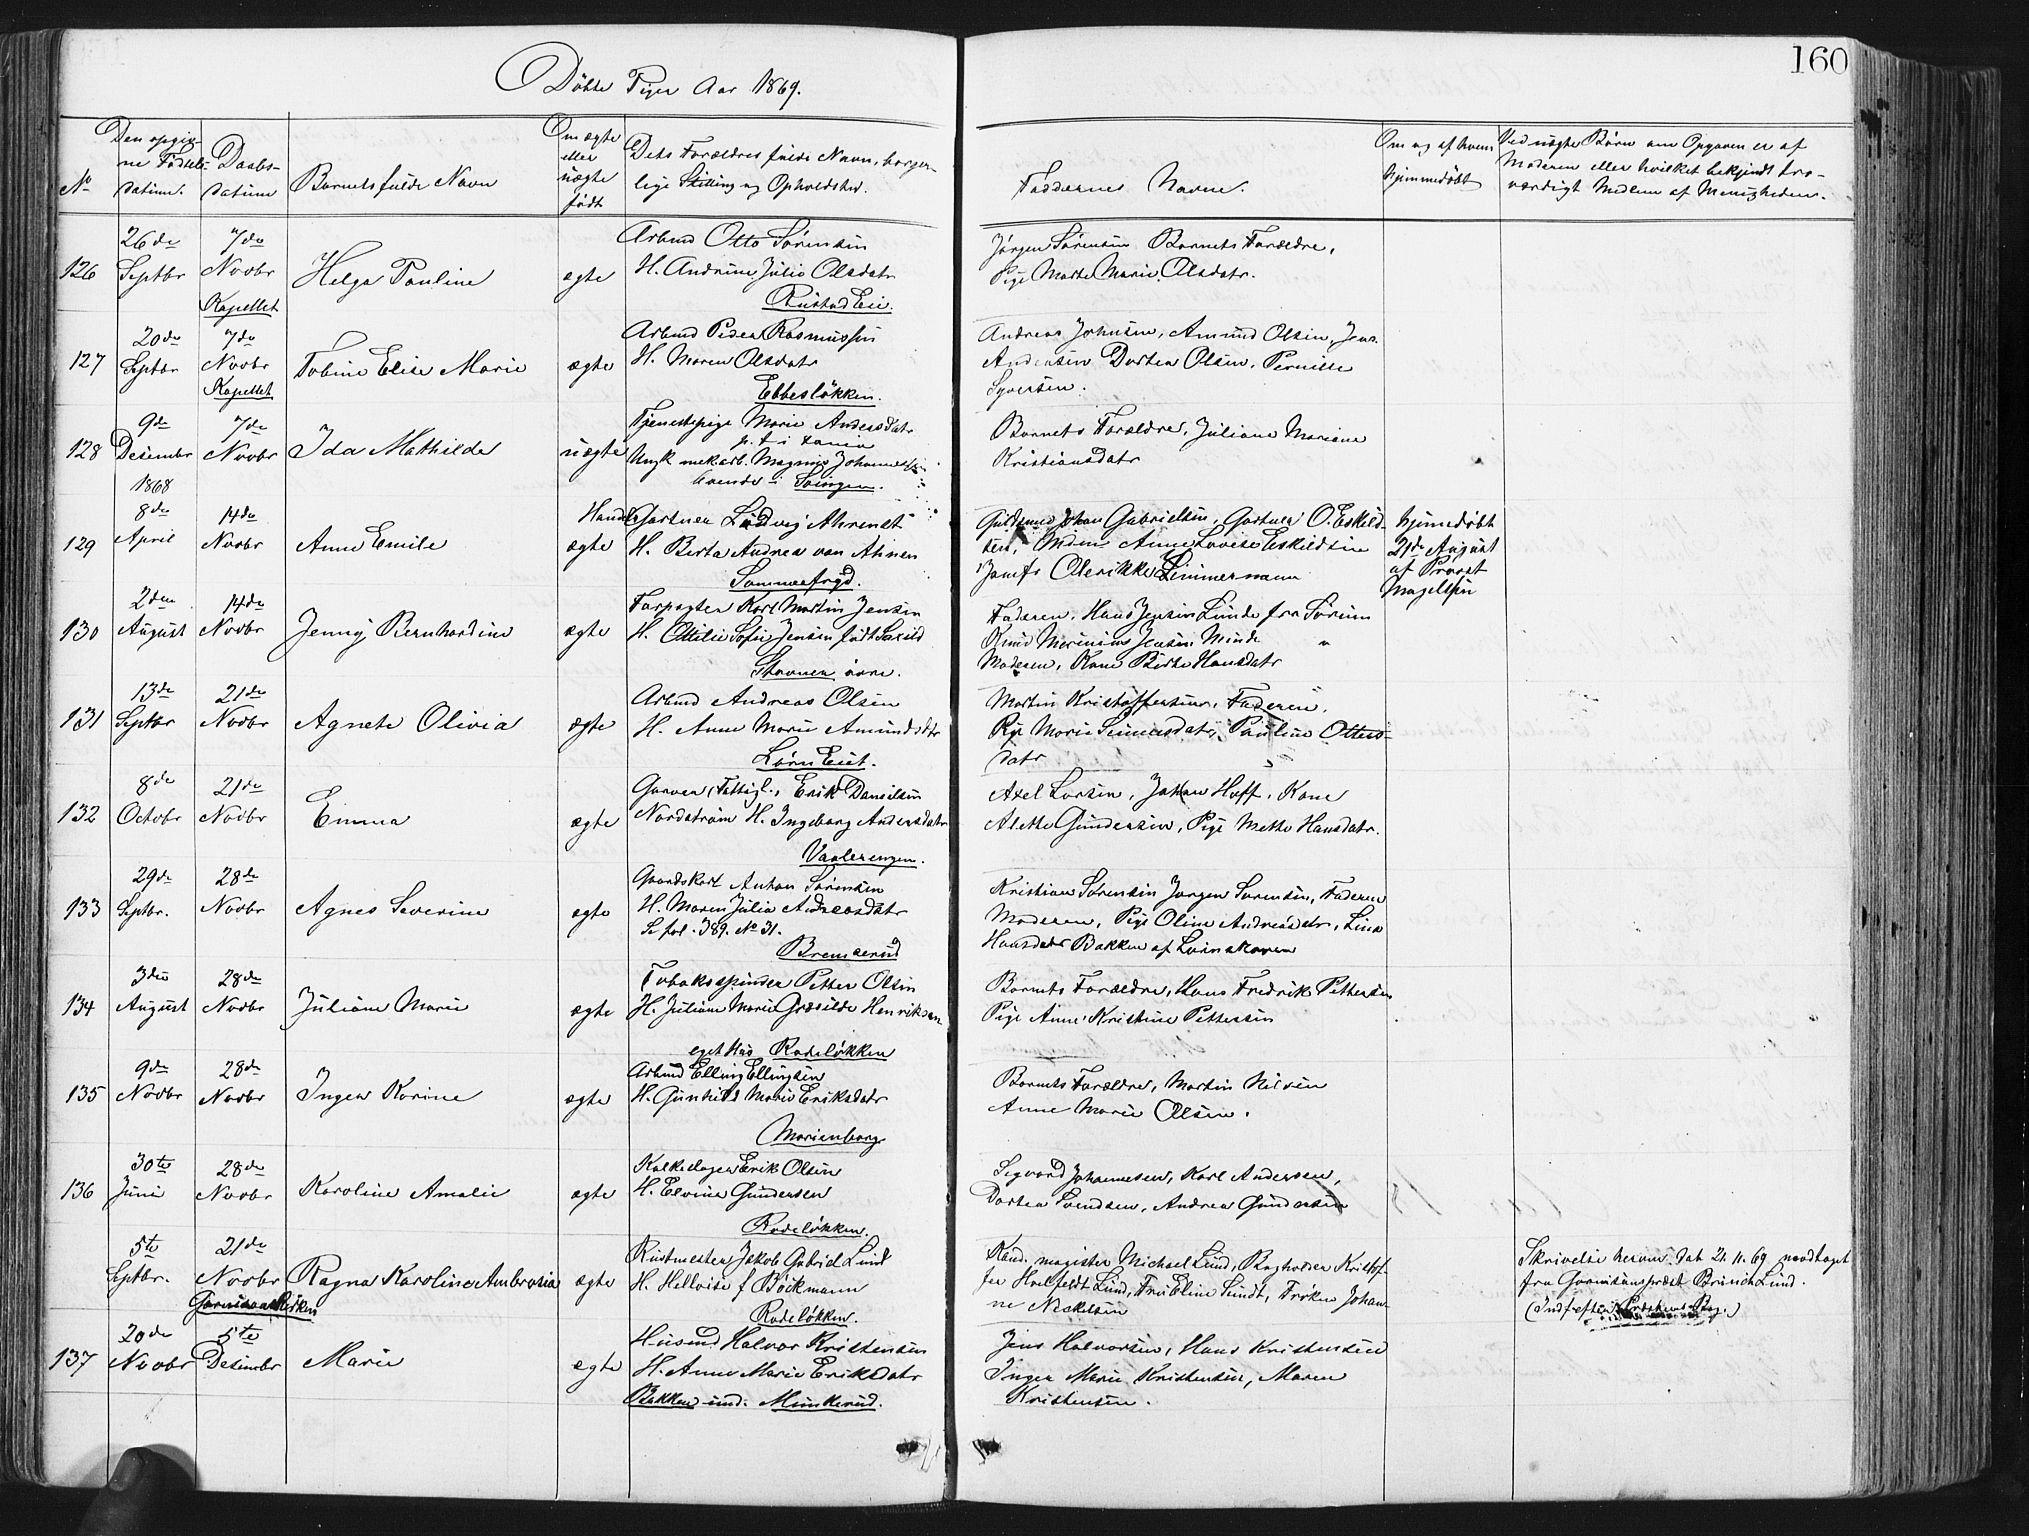 160
Döbte Piger Aar 1869.
No
Den opgiv-
ne Födsels-
datum.
Daabs-
datum
Barnets fulde Navn
Om ægte
eller
uægte
födt
Dets Forældres fulde Navn, borger-
lige Stilling og Opholdsted.
Faddernes Navne.
Om og af hvem
hjemmedöbt
Ved uægte Börn om Opgaven er af
Moderen eller hvilket bekjendt tro-
værdigt Medlem af Menigheden.
126
26de
Septbr
7de
Novbr
Kapellet
Helga Pauline
ægte
Arbmd Otto Sörensen
H. Andrine Julie Olsdatr
Rustad Eie.
Jörgen Sörensen Barnets Forældre,
Pige Marte Marie Olsdatr.
127
20de
Septbr
7de
Novbr
Kapellet
Tobine Elise Marie
ægte
Arbmd Peder Rasmussen
H. Maren Olsdatr
Ebbeslökken.
Andreas Johnsen, Amund Olsen, Jens
Andersen Dortea Olsen, Pernille
Syversen.
128
9de
Desembr
1868
7de
Novbr
Ida Mathilde
uægte
Tjenestepige Marie Andersdatr
p. t. i
Ungk mek.arb. Magnus Johannessen
boende i Svingen.
Barnets Forældre, Juliane Mariane
Kristiansdatr
129
8de
April
14de
Novbr
Anna Emile
ægte
Handelsgartner Ludvig Ahrendt
H. Berta Andrea van Ahnen
Sommerfryd.
Guldsmed Johan Gabrielsen, Gartner O. Eskild-
sen, Anne Lovise Eskildsen
Jomfr Olerikke Zimmermann
hjemmedöbt
21de August
af Provst
Magelssen
130
2den
August
14de
Novbr
Jenny Bernhardine
ægte
Forpagter Karl Martin Jensen
H. Ottilie Sofie Jensen födt Saxild
Stovner övre.
Faderen, Hans Jensen Lunde fra Sörum
Knud Marinius Jensen Minde "
Moderen, Kone Birthe Hansdatr
131
13de
Septbr
21de
Novbr
Agnete Olivia
ægte
Arbmd Andreas Olsen
H. Anne Marie Amundsdatr
Lören Eiet.
Martin Kristoffersen, Faderen,
Pige Marie Simensdatr, Pauline Otters-
datr
132
8de
Octobr
21de
Novbr
Emma
ægte
Garver (Fattigl.) Erik Danielsen
Nordström H. Ingeborg Andersdatr
Vaalerengen.
Axel Larsen, Johan Hoff, Kone
Alette Gundersen, Pige Mette Hansdatr.
133
29de
Septbr.
28de
Novbr
Agnes Severine
ægte
Gaardskarl Anton Sörensen
H. Maren Julia Andreasdatr
Se fol. 389. No 31.
Bremserud
Kristian Sörensen Jörgen Sörensen, Faderen
Moderen, Pige Oline Andreasdatr, Lina
Hansdatr Bakken af Lörenskoven
134
3die
August
28de
Novbr
Juliane Marie
ægte
Tobaksspinder Petter Olsen
H. Juliane Marie Græsilde Henriksen
eget Hus Rodelökken
Barnets Forældre, Hans Fredrik Pettersen
Pige Anne Kristine Pettersen
135
9de
Novbr
28de
Novbr
Inger Karine
ægte
Arbmd Elling Ellingsen
H. Gunhild Marie Eriksdatr
Marienborg
Barnets Forældre, Martin Nilsen
Anne Marie Olsen.
136
30te
Juni
28de
Novbr
Karoline Amalie
ægte
Kalkslager Erik Olsen
H. Elvine Gundersen
Rodelökken.
Sigvard Johannesen, Karl Andersen,
Dortea Svendsen, Andrea Gundersen
5te
Septbr.
21de
Novbr
Garnisonskirken
Ragna Karoline Ambrosia
ægte
Rustmester Jakob Gabriel Lund
H. Helloise f Böckmann
Rodelökken.
Kand. magister Michael Lund, Bogholder Kristof-
fer Holfeldt Lund, Fru Eline Lundt, Fröken Johan-
ne Nickelsen
Skrivelse herom dat 21.11.69 modtaget
fra Garnisonspræst Brinch Lund.
137
20de
Novbr
5te
Desembr
Marie
ægte
Husmd Halvor Kristensen
H. Anne Marie Eriksdatr
Bakken und. Munkerud.
Jens Halvorsen, Hans Kristensen
Inger Marie Kristensen, Maren
Kristensen.